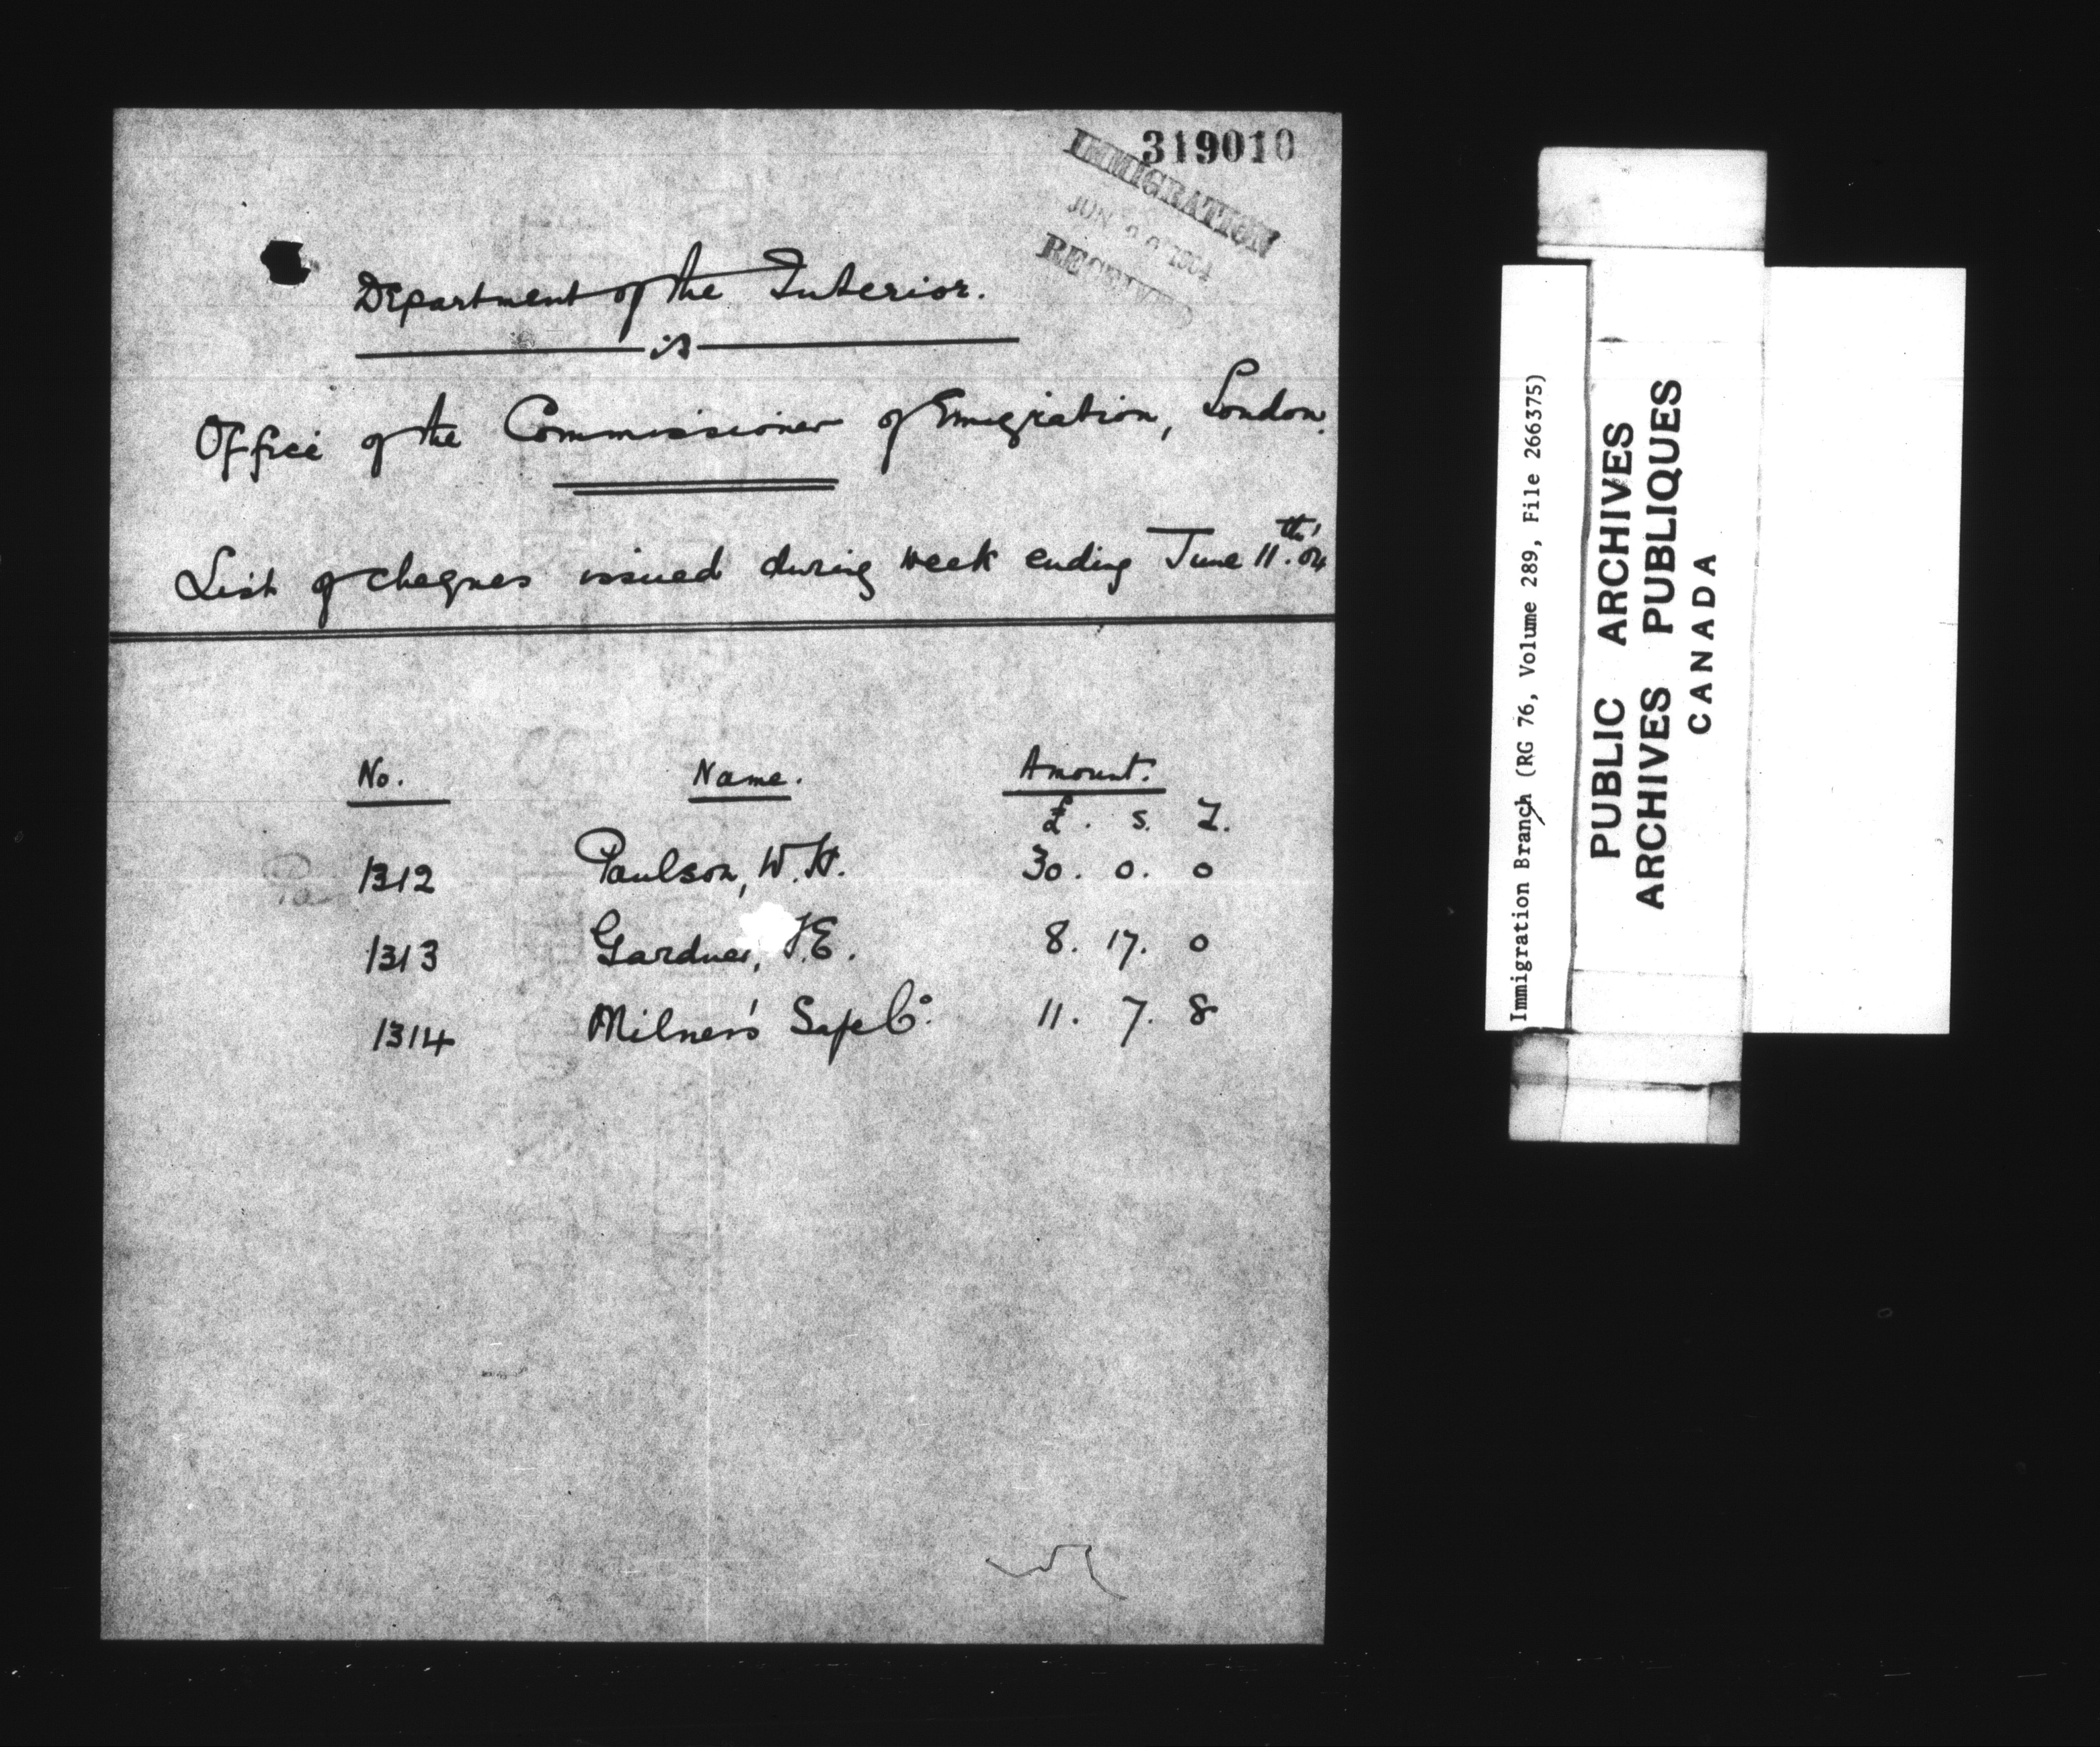 319010
IMMIGRATION
JUN 1904
RECEIVED
Department of the Interior.
Office of the Commissioner of Emigration, London.
List of cheques issued during week ending June 11th. '04
No. Name. Amount.
£. s. d.
1312 Paulson, W.H. 30. 0. 0
1313 Gardner, J.E. 8. 17. 0
1314 Milner's Safe Co. 11. 7. 8
Immigration Branch (RG 76, Volume 289, File 266375)
PUBLIC ARCHIVES
ARCHIVES PUBLIQUES
CANADA